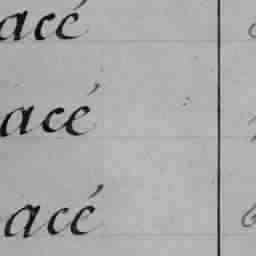 acé
acé
acé